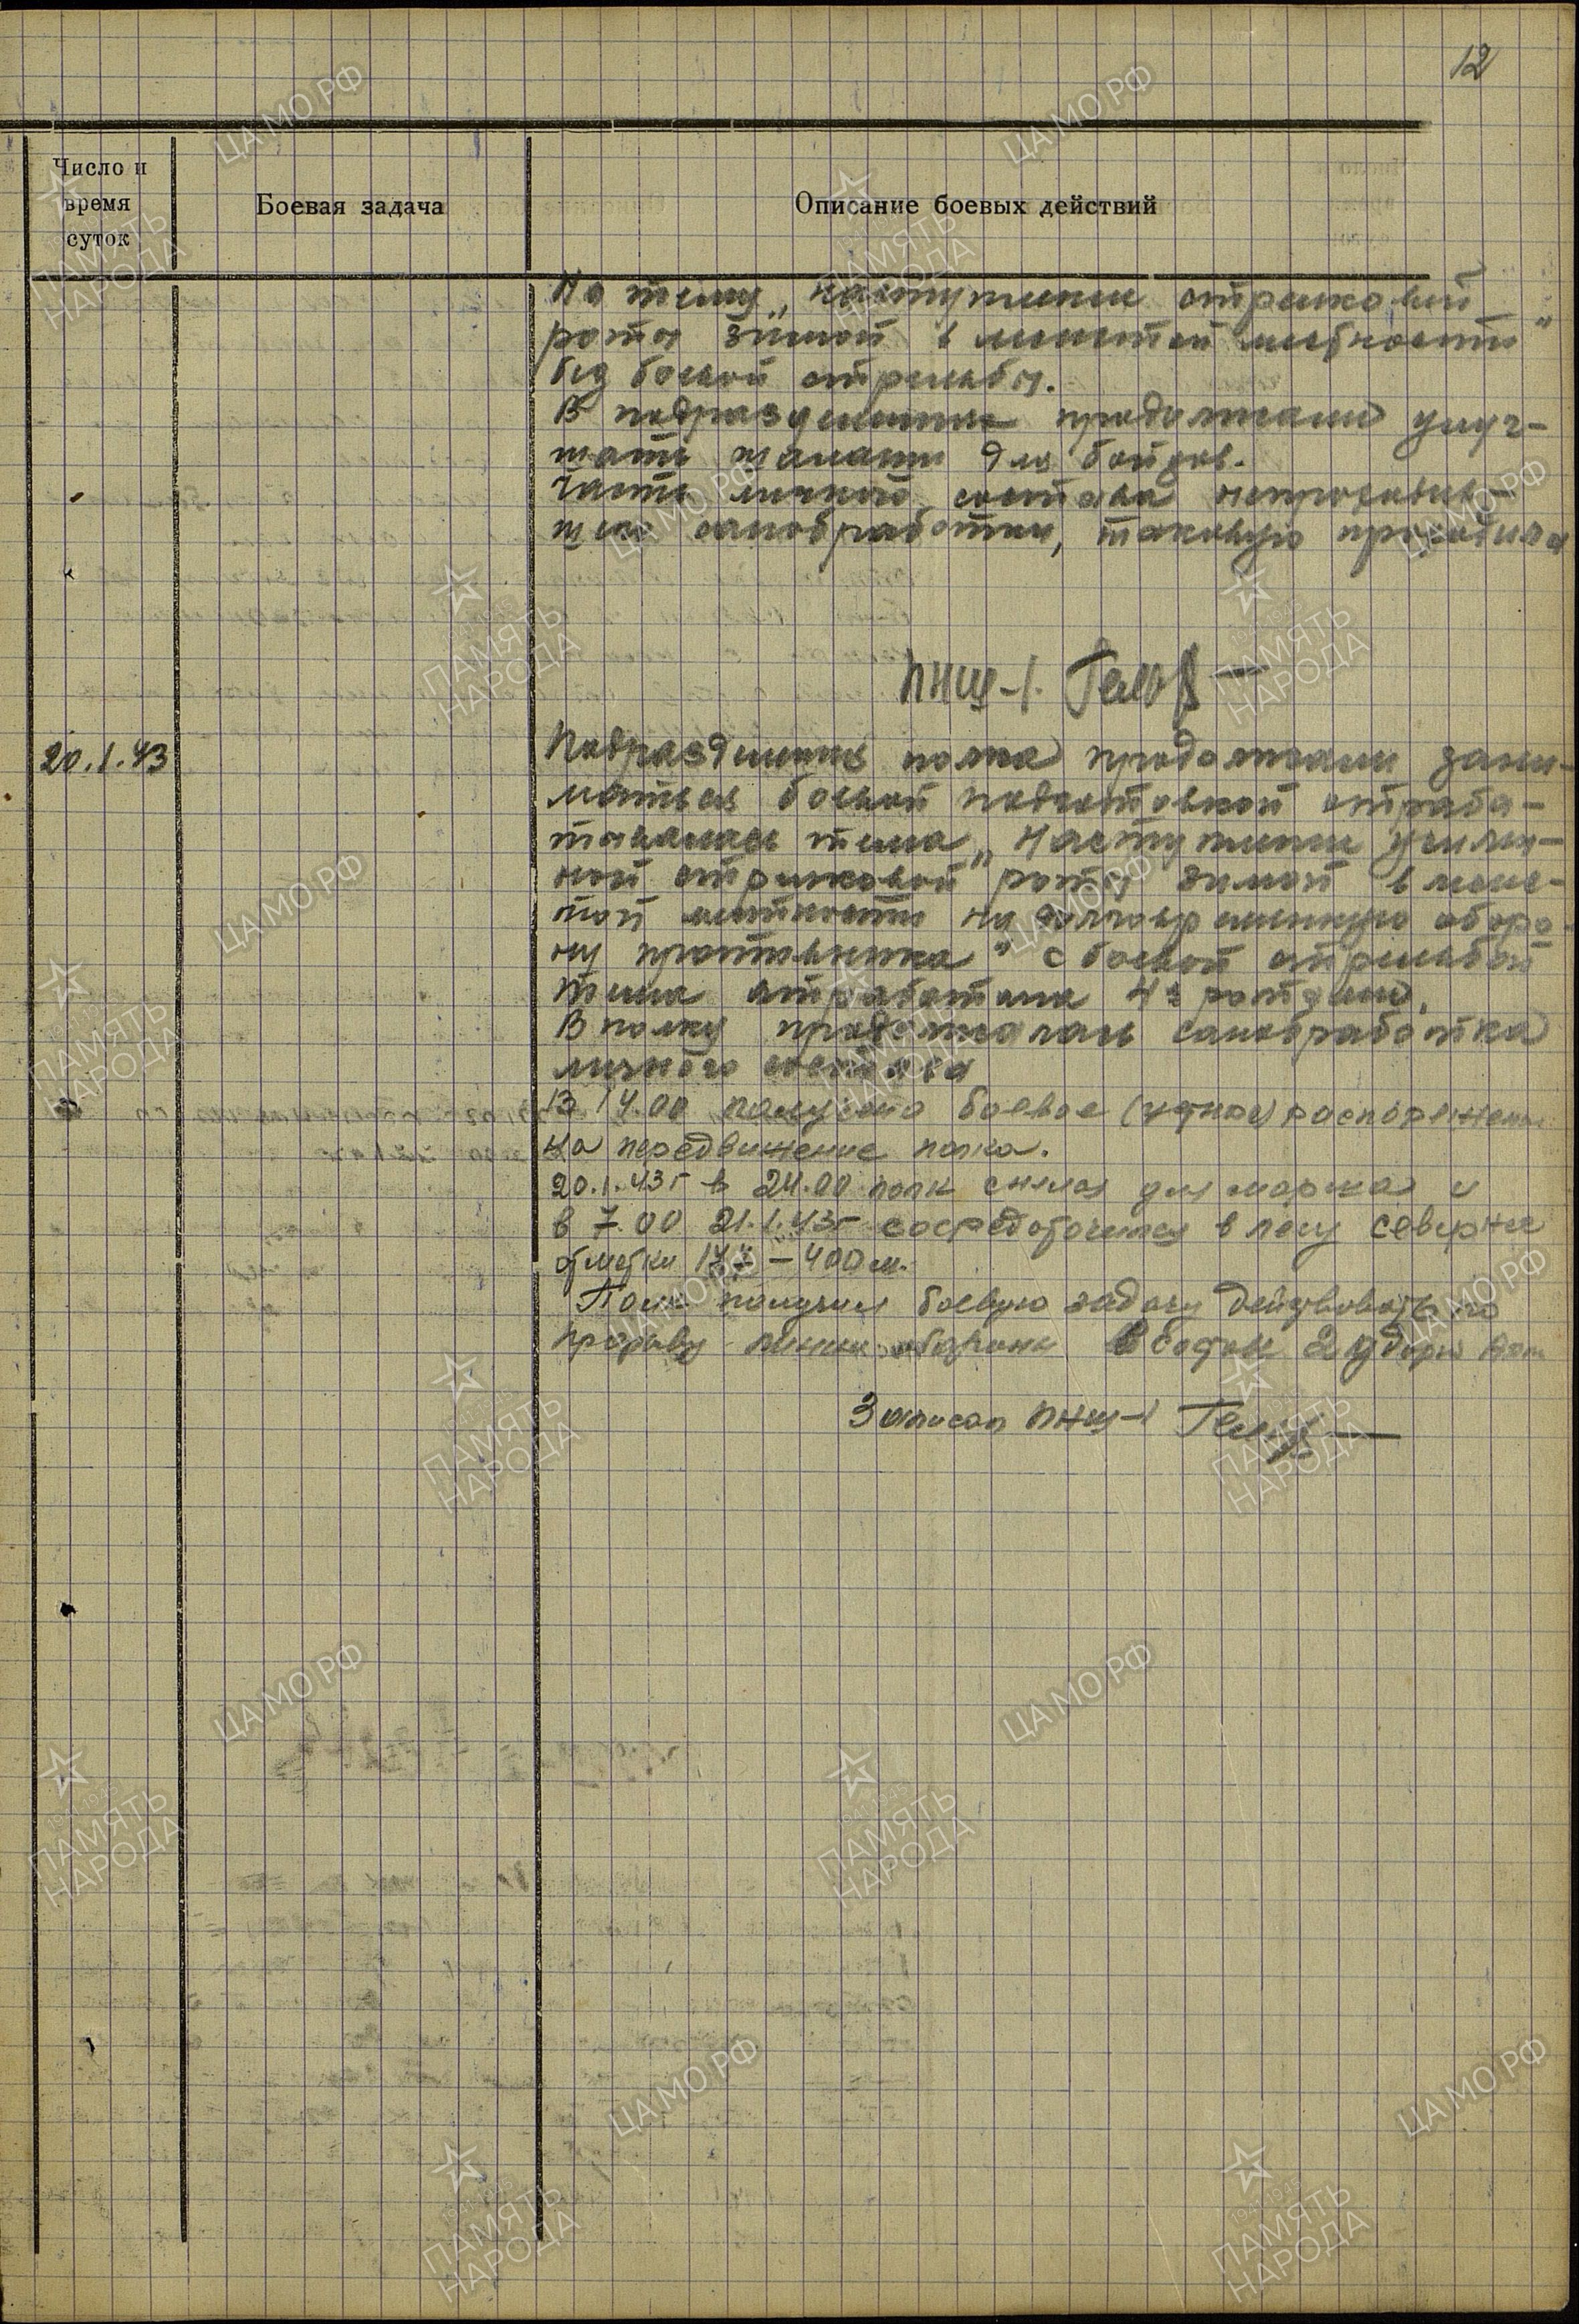 12
Число и
время
суток
Боевая задача
Описание боевых действий
На тему „Наступление стрелковой
роты зимой в лесистой местности“
без боевой стрельбы.
В подразделениях продолжали улуч-
шать шалаши для бойцов.
Часть личного состава непроходив-
шего санобработки, таковую проходила
ПНШ-1.
20.1.43
Подразделения полка продолжали зани-
маться боевой подготовкой отраба-
тывалась тема „Наступление усилен-
ной стрелковой роты зимой в лесис-
той местности на долговременную оборо-
ну противника“ с боевой стрельбой
тема отработана 4й ротами.
В полку продолжалась санобработка
личного состава
В 14.00 получено боевое (устное) распоряжение
на передвижение полка.
20.1.43г в 24.00 полк снялся для марша и
в 7.00 21.1.43г сосредоточился в лесу севернее
отметки – 400 м.
Полк получил боевую задачу действовать по
прорыву линии обороны
Записал ПНШ-1
ЦАМО РФ
ПАМЯТЬ
НАРОДА